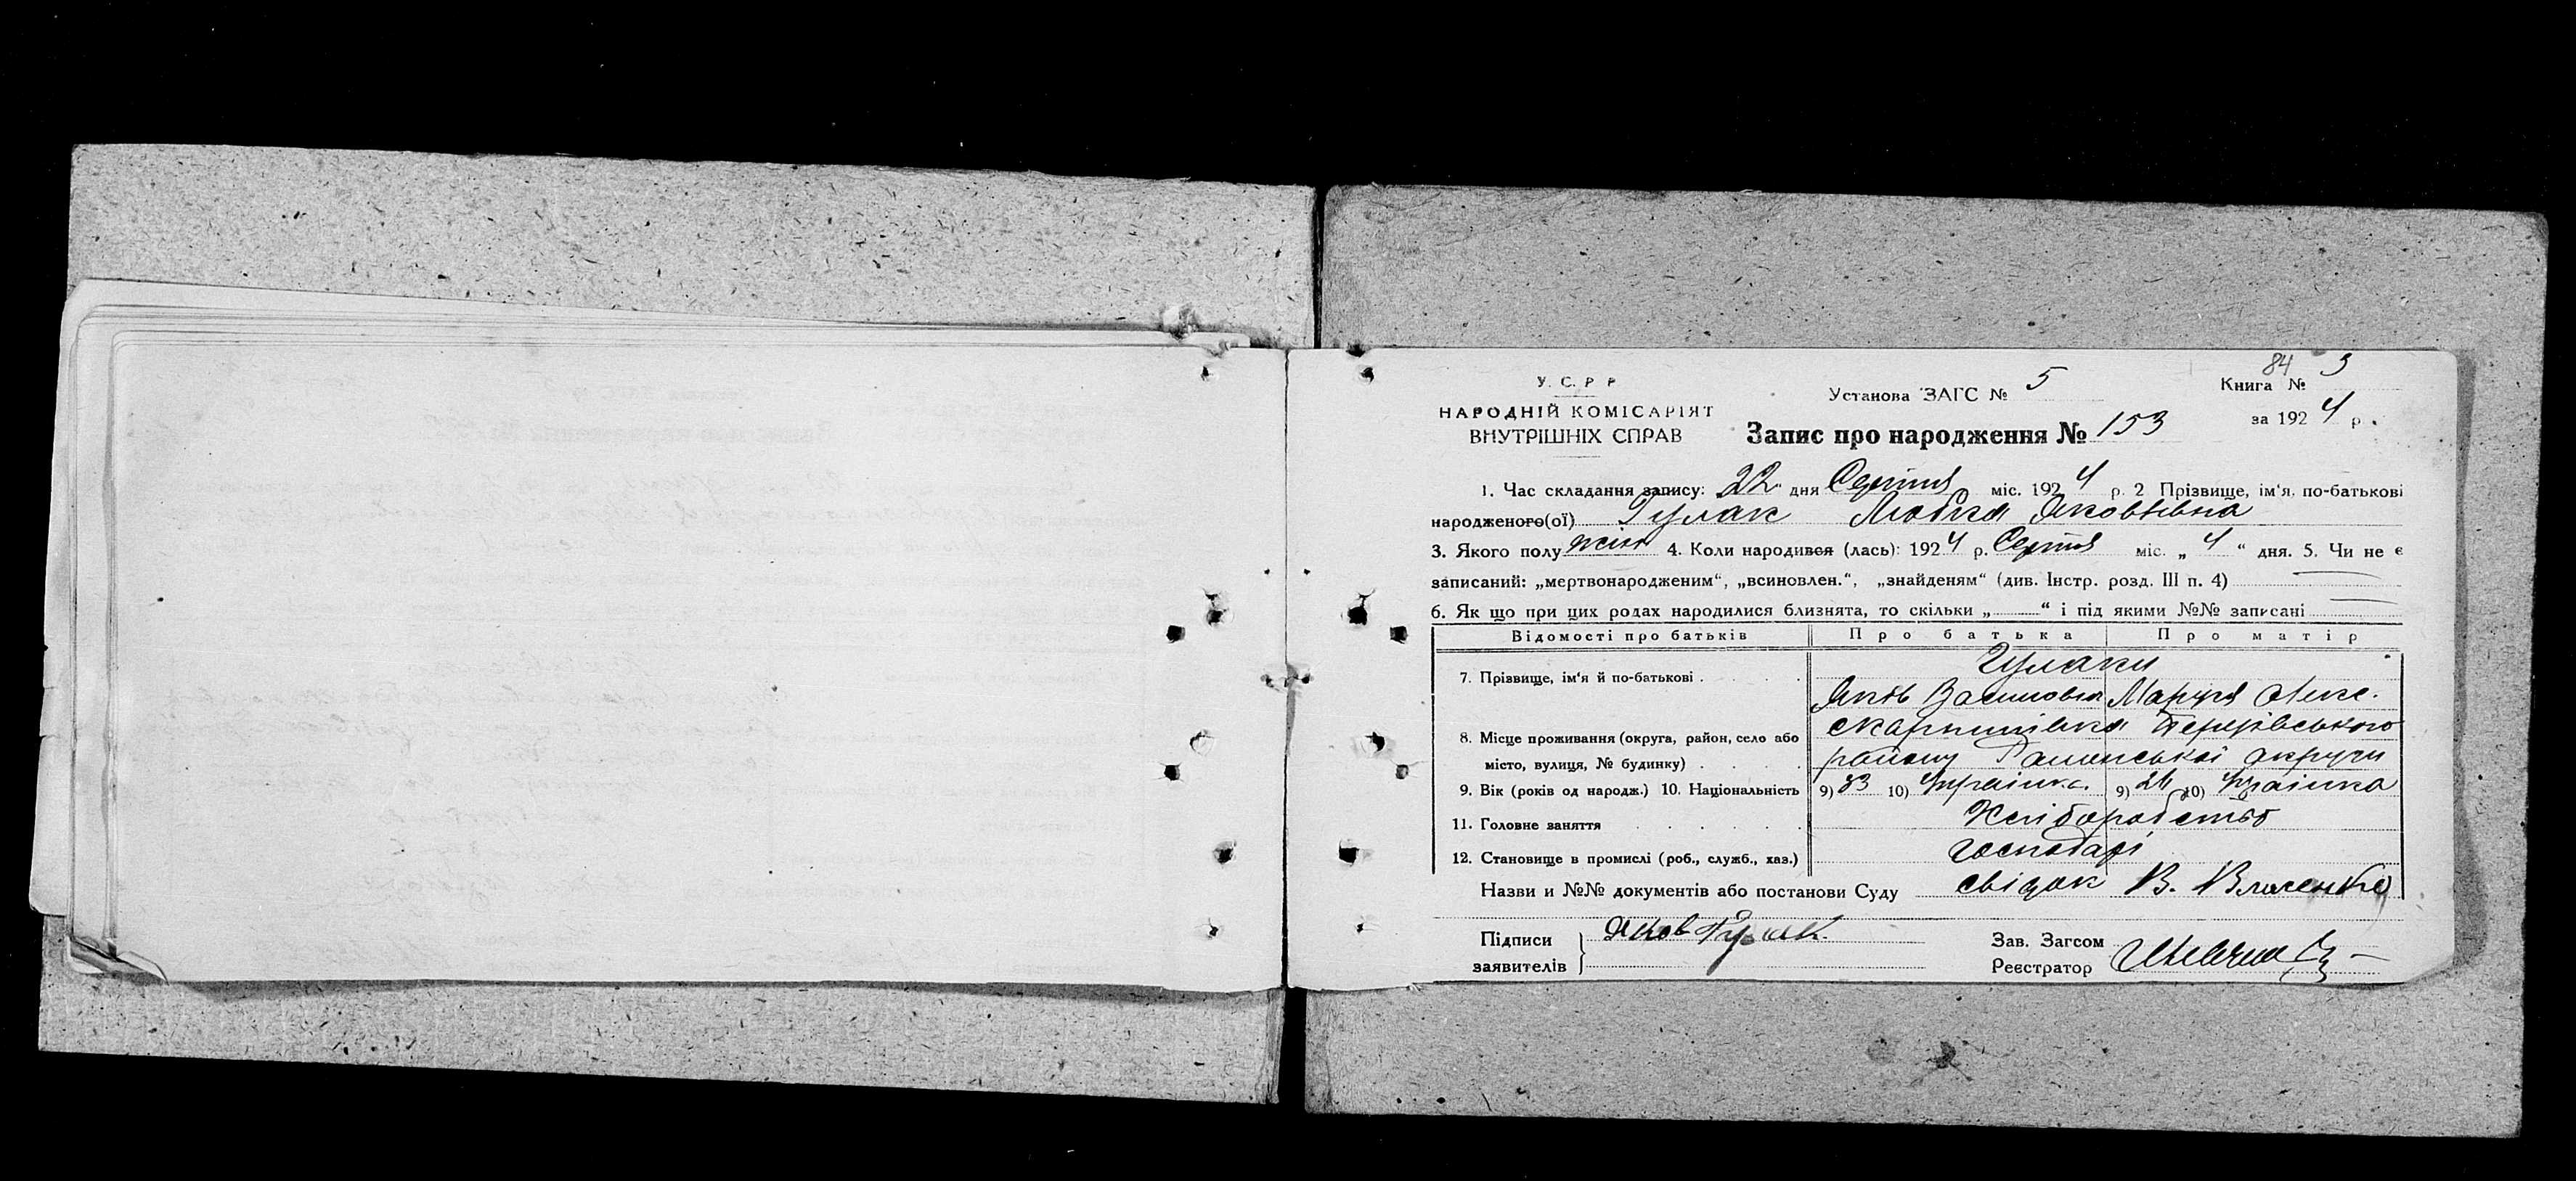 84 3
У. С. Р Р
Установа ЗАГС № 5
Книга №
НАРОДНІЙ КОМІСАРІЯТ
за 1924 р.
ВНУТРІШНІХ СПРАВ
Запис про народження № 153
1. Час складання запису: 22 дня Серпня міс. 1924 р. 2 Прізвище, ім'я, по-батькові
народженого(ої) Гулак Любка Яковлівна
3. Якого полу жін 4. Коли народився (лась): 1924 р. Серпня міс. „ 4 “ дня. 5. Чи не є
записаний: „мертвонародженим“, „всиновлен.“, „знайденям“ (див. Інстр. розд. III п. 4)
6. Як що при цих родах народилися близнята, то скільки „ “ і під якими №№ записані
Відомості про батьків Про батька Про матір
Гулаки
7. Прізвище, ім'я й по-батькові
Яків Васильович Марія Олекс.
8. Місце проживання (округа, район, село або
місто, вулиця, № будинку)
району Роменської округи
9. Вік (років од народж.) 10. Національність 9) 33 10) 9) 10) Українка
11. Головне заняття Хліборобство
12. Становище в промислі (роб., служб., хаз.) господарі
Назви и №№ документів або постанови Суду свідок В.
Підписи Яков Гулак.
заявителів
Зав. Загсом
Реєстратор